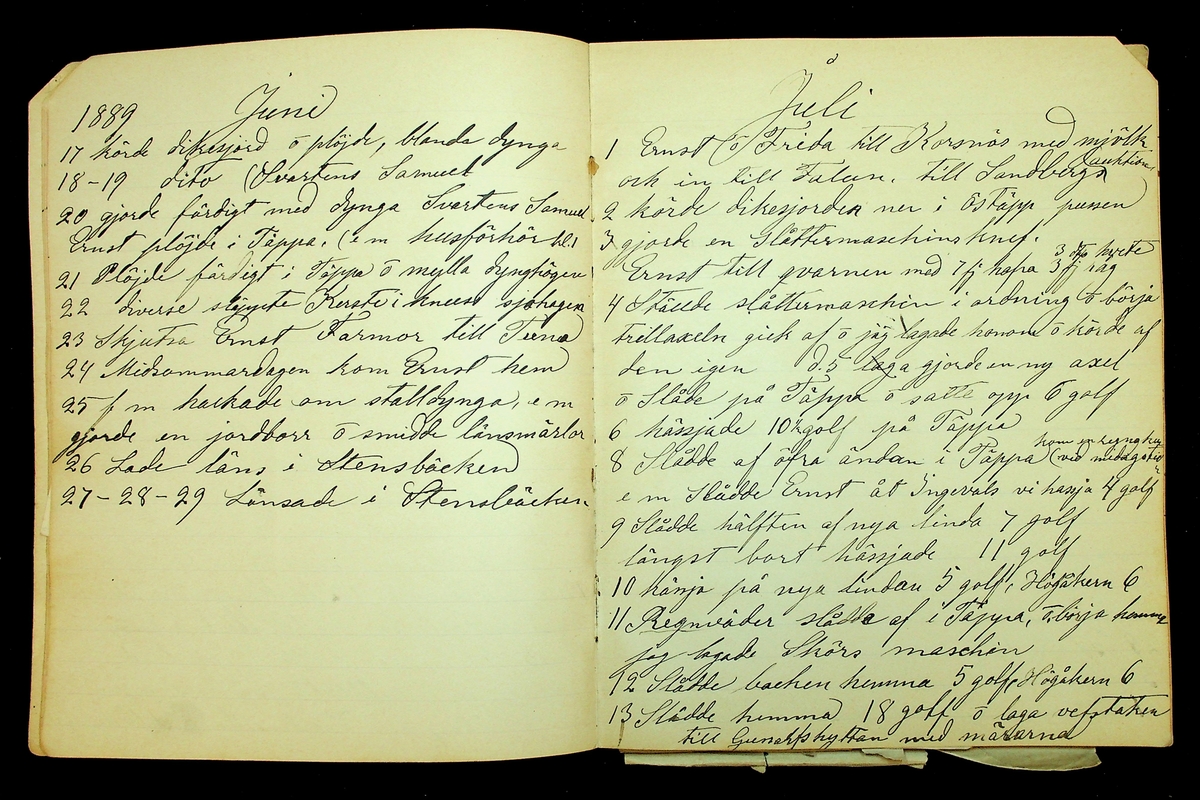 1889 Juni
17 körde dikesjord ō plöjde, blanda dynga
18-19 dito Svartens Samuel
20 gjorde färdigt med dynga Svartens Samuel
Ernst plöjde i Täppa. (e m husförhör
21 Plöjde färdigt i Täppa ō mylla dynghögen
22 diverse släppte Kerste i sjöhagen
23 Skjutsa Ernst Farmor till
24 Midsommardagen kom Ernst hem
25 f m hackade om stalldynga, e m
gjorde en jordborr ō smidde länsmärlor
26 Lade läns i Stensbäcken
27-28-29 Länsade i Stensbäcken
Juli
1 Ernst ō Frida till Korsnäs med mjölk
och in till Falun. till Sandbergs auktion
2 körde dikesjorden ner i Ös Täpp pussen
3 gjorde en Slåttermaschinsknif.
3 hvete
Ernst till qvarnen med 7 fj hafra 3 fj råg
4 Stälde slåttermaschin i ordning ō börja
trillaxeln gick af ō jag lagade honom ō körde af
den igen d. 5 laga gjorde en ny axel
ō Slådde på Täppa ō satte opp 6 golf
6 hässjade 10½ golf på Täppa
8 Slådde af öfra ändan i Täppa (ved middagstid
e m Slådde Ernst åt Ingevals vi hässja 4 golf
9 Slådde hälften af nya linda 7 golf
längst bort hässjade 11 golf
10 hässja på nya lindan 5 golf, Högåkern 6
11 Regnväder slådde af i Täppa, ō börja hemma
jag lagade Skörs maschin
12 Slådde backen hemma 5 golf Högåkern 6
13 Slådde hemma 18 golf ō laga
till Gunarshyttan med märarna